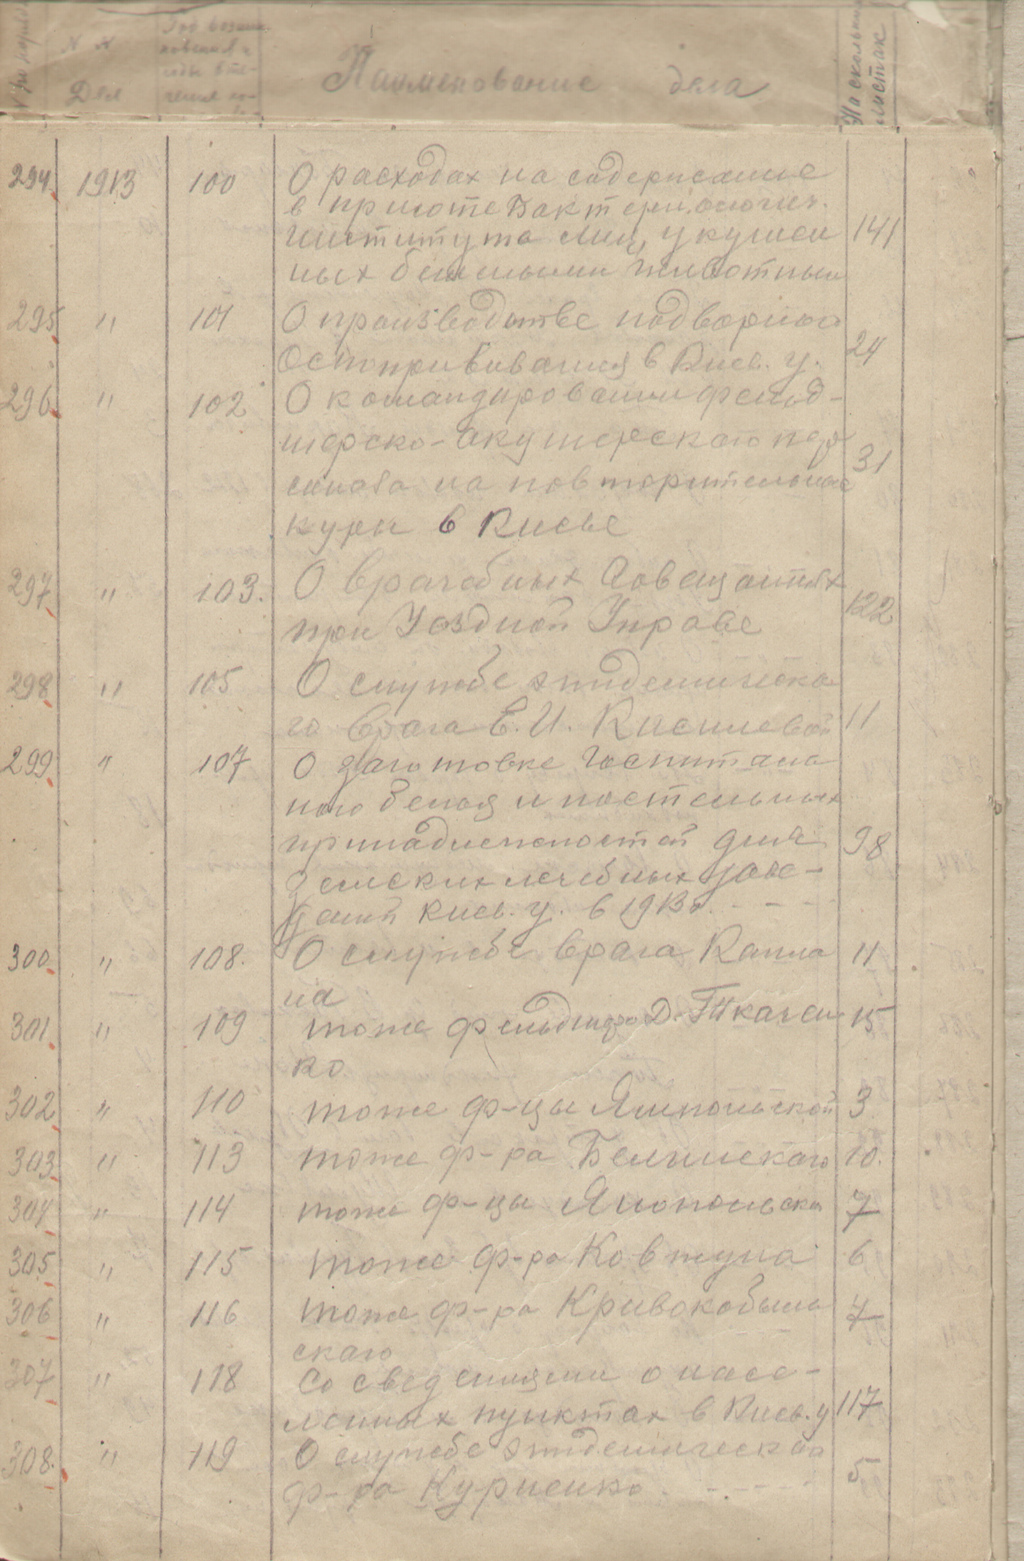 № № Дел
Наименование дела
На скольких листах
294. 1913 100 О расходах на содержание
в приюте Бактериологич.
Института лиц, укушен 141
ных бешеными животным
295 " 101 О производстве подворного
Оспопрививания в Киев. у. 24
296. " 102 О командировании фельд-
шерско-акушерского пер
сонала на повторительные 31
курсы в Киеве
297 " 103. О врачебных Совещаниях
при Уездной Управе 122
298 " 105 О службе эпидемическа
го врача Е. И. Киселевой 11
299 " 107 О заготовке Госпиталь
ного белья и постельных
принадлежностей для 98
земских лечебных заве-
дений Киев. у. в 1913 г. - - -
300 " 108. О службе врача Капла 11
на
301 " 109 тоже фельдшера Д. Ткачен 15
ко
302 " 110 тоже ф-цы Ямпольской 3
303 " 113 тоже ф-ра Белинскаго 10.
304 " 114 тоже ф-цы Ямпольской 7
305 " 115 тоже ф-ра Ковтуна 6
306 " 116 тоже ф-ра Кривокобыль 7
скаго
307 " 118 Со сведениями о насе-
ленных пунктах в Киев. у 117
308. " 119 О службе эпидемическаго
ф-ра Куриенко. - - - - 5